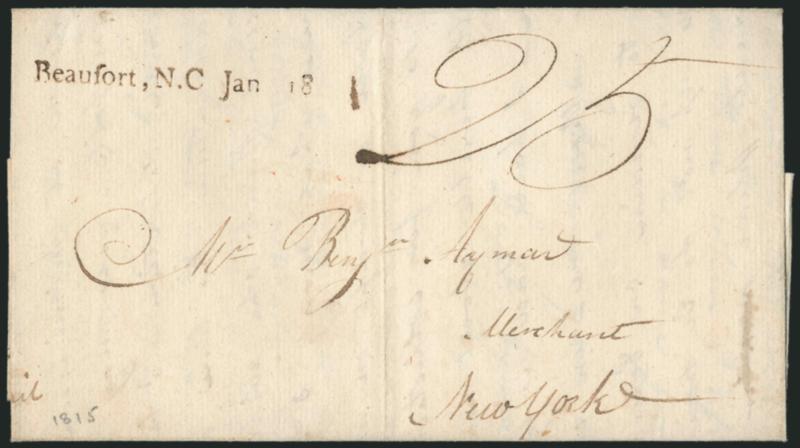 Beaufort, N.C Jan 18
25
Mr Benjn Aymar
Merchant
New York
il
1815